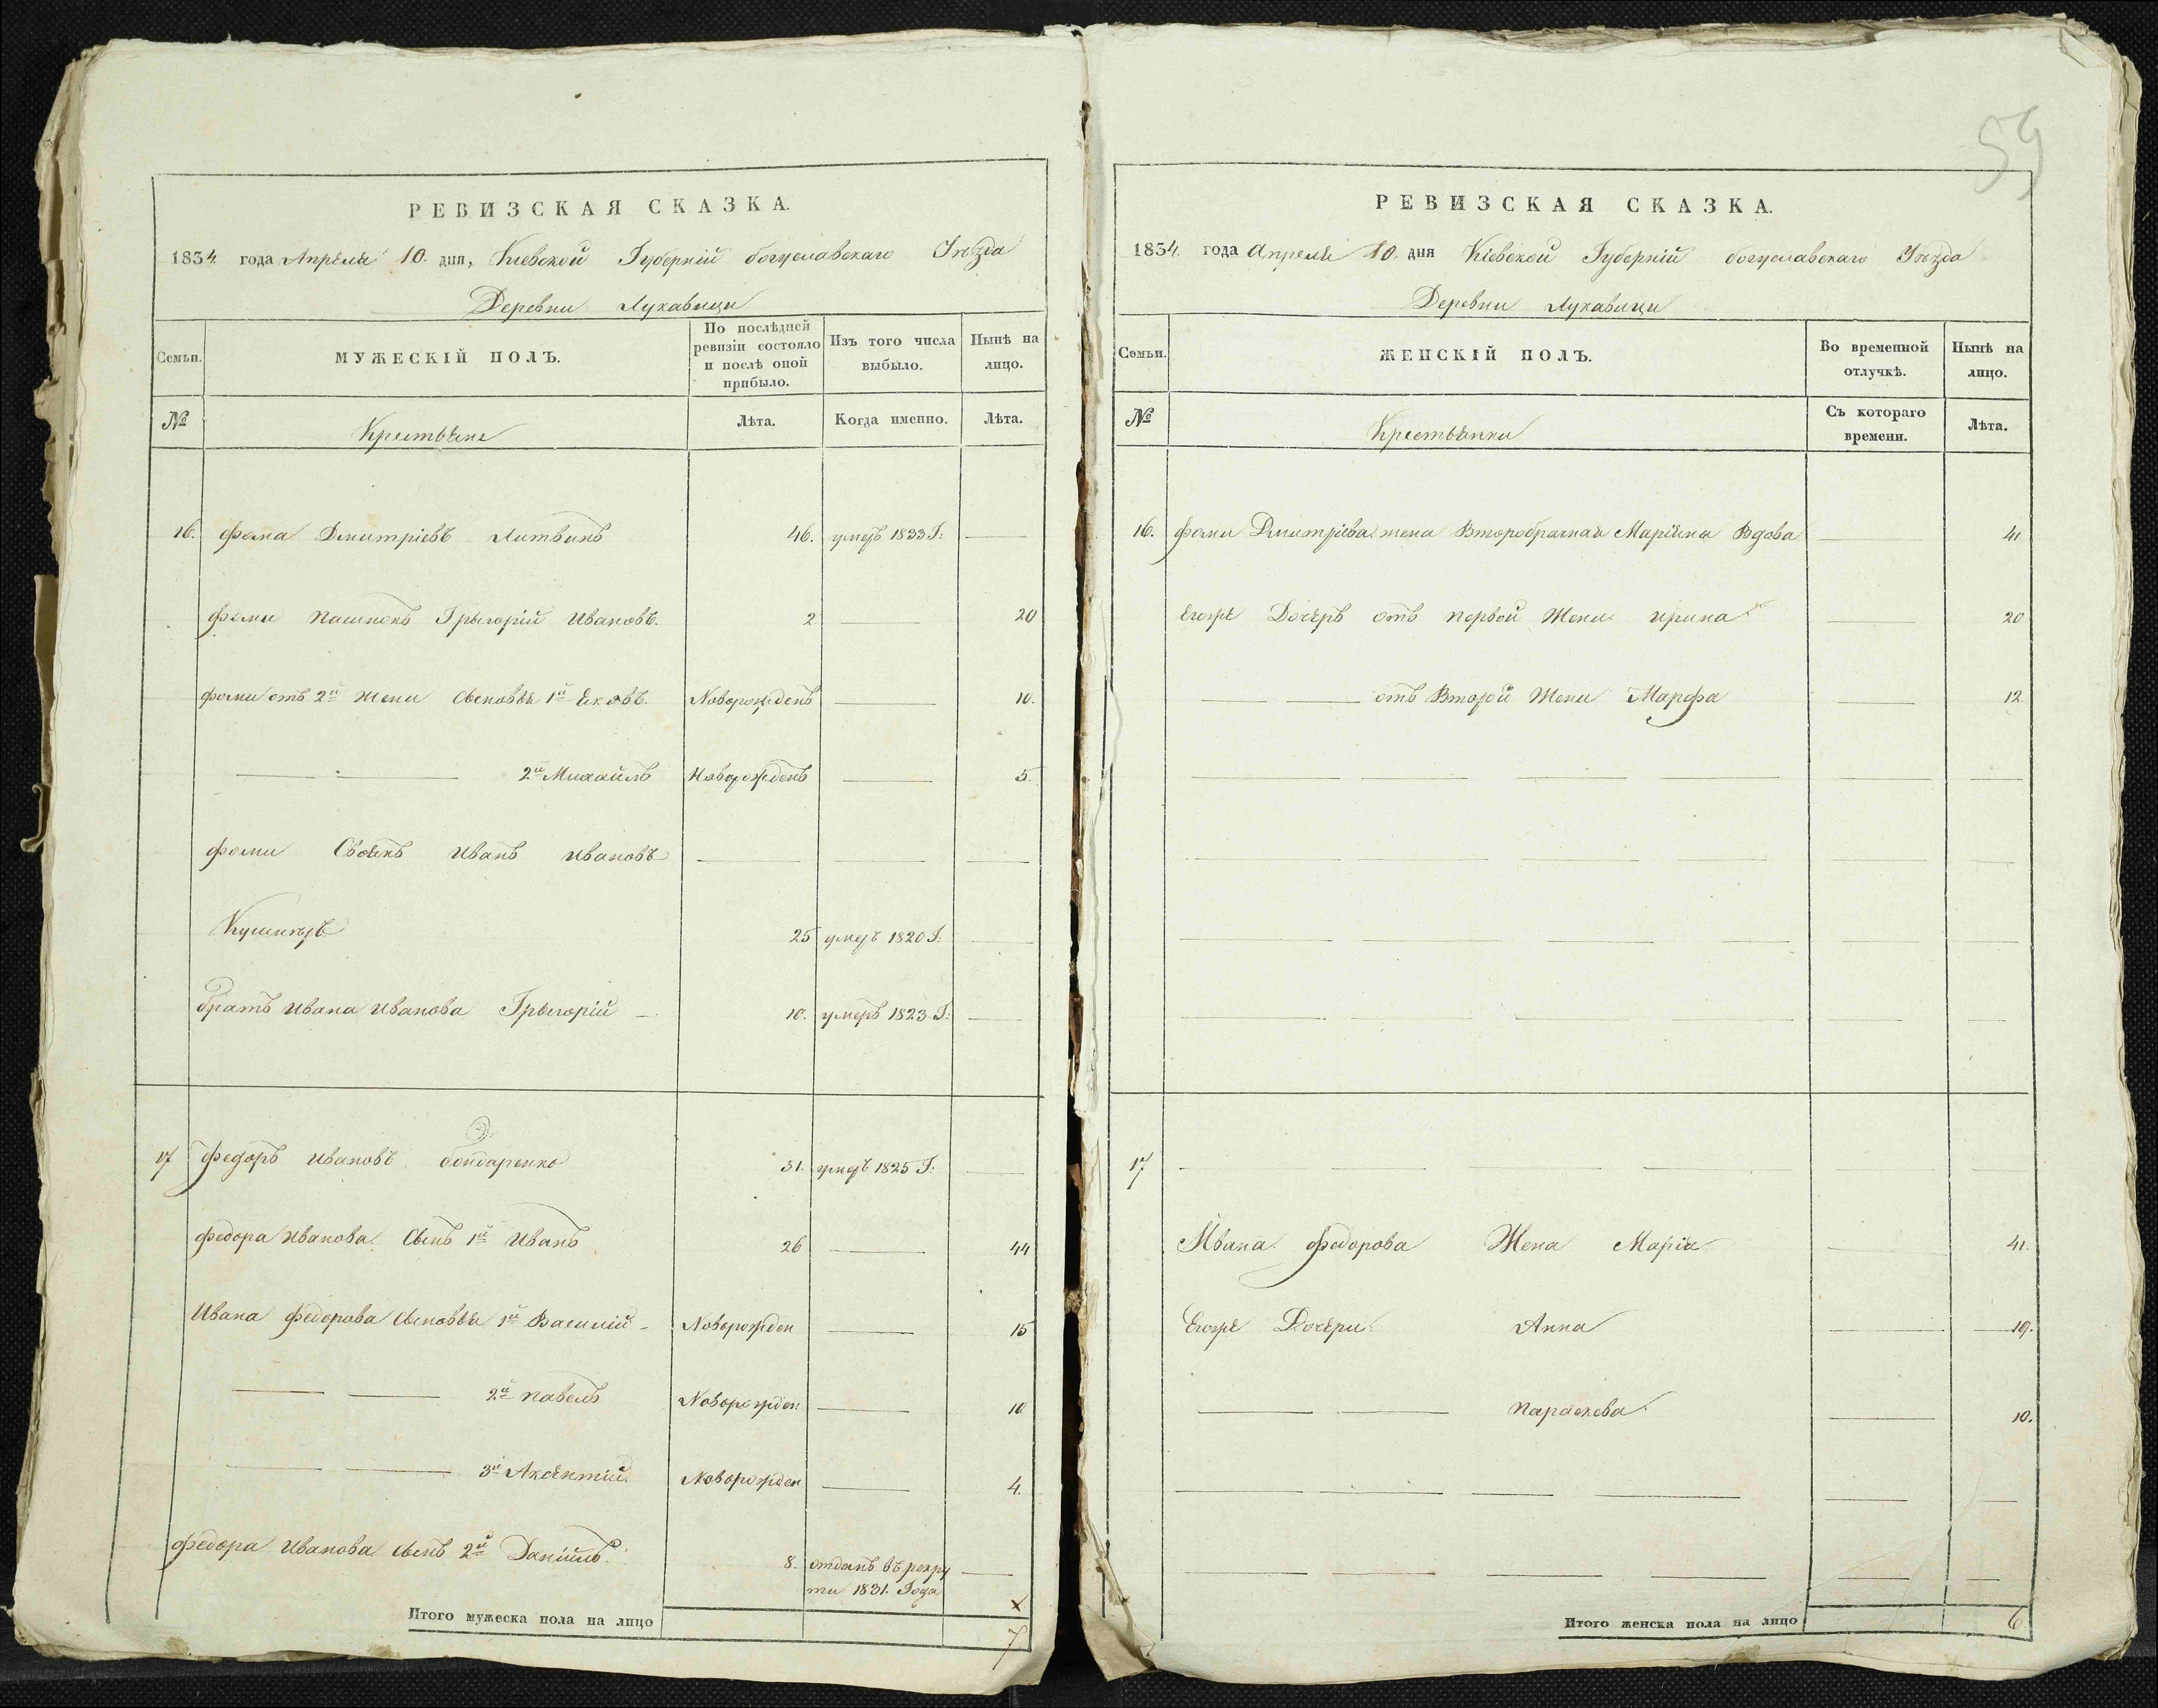 59
РЕВИЗСКАЯ СКАЗКА.
1834. года Апреля 10. дня, Киевской Губерний богуславскаго Уѣзда
Деревни Лукавици
Семьи.
МУЖЕСКІЙ ПОЛЪ.
По послѣдней ревизіи состояло и послѣ оной прибыло.
Изъ того числа выбыло.
Нынѣ на лицо.
№
Крестьяне
Лѣта.
Когда именно.
Лѣта.
16. фома Дмитріевъ Литвинъ 46. умеръ 1833 Г:
фоми Пасинокъ Грыгорій Ивановъ. 2 20
фоми отъ 2й жени Сыновья 1й Яковъ. Новорожденъ 10.
2й Михайлъ Новорожденъ 5.
фоми Своякъ Иванъ Ивановъ
25 умеръ 1820 Г:
братъ Ивана Иванова Грыгорій 10. умеръ 1823 Г:
17 Федоръ Ивановъ бондаренко 51. умеръ 1825 Г:
Федора Иванова Сынъ 1й Иванъ 26 44
Ивана Федорова Сыновья 1й Василій Новорожден 15
2й Павелъ Новорожден 10
3й Аксентий Новорожден 4.
Федора Иванова Сынъ 2й Данійлъ. 8. отданъ въ рекру
ти 1831. Года
Итого мужеска пола на лицо 7
РЕВИЗСКАЯ СКАЗКА.
1834. года Апреля 10. дня Кіевской Губерній богуславскаго Уѣзда
Деревни Лукавици
Семьи.
ЖЕНСКІЙ ПОЛЪ.
Во временной отлучкѣ.
Нынѣ на лицо.
№
Крестьянки
Съ котораго времени.
Лѣта.
16. фоми Дмитріева жена Второбрачная Марійна Вдова 41
Егоже Дочерь отъ первой Жени Ирина 20
отъ Второй Жени Марфа 12.
17
Ивана Федорова Жена Марія 41.
Егоже Дочери Анна 19.
Параскева 10.
Итого женска пола на лицо 6